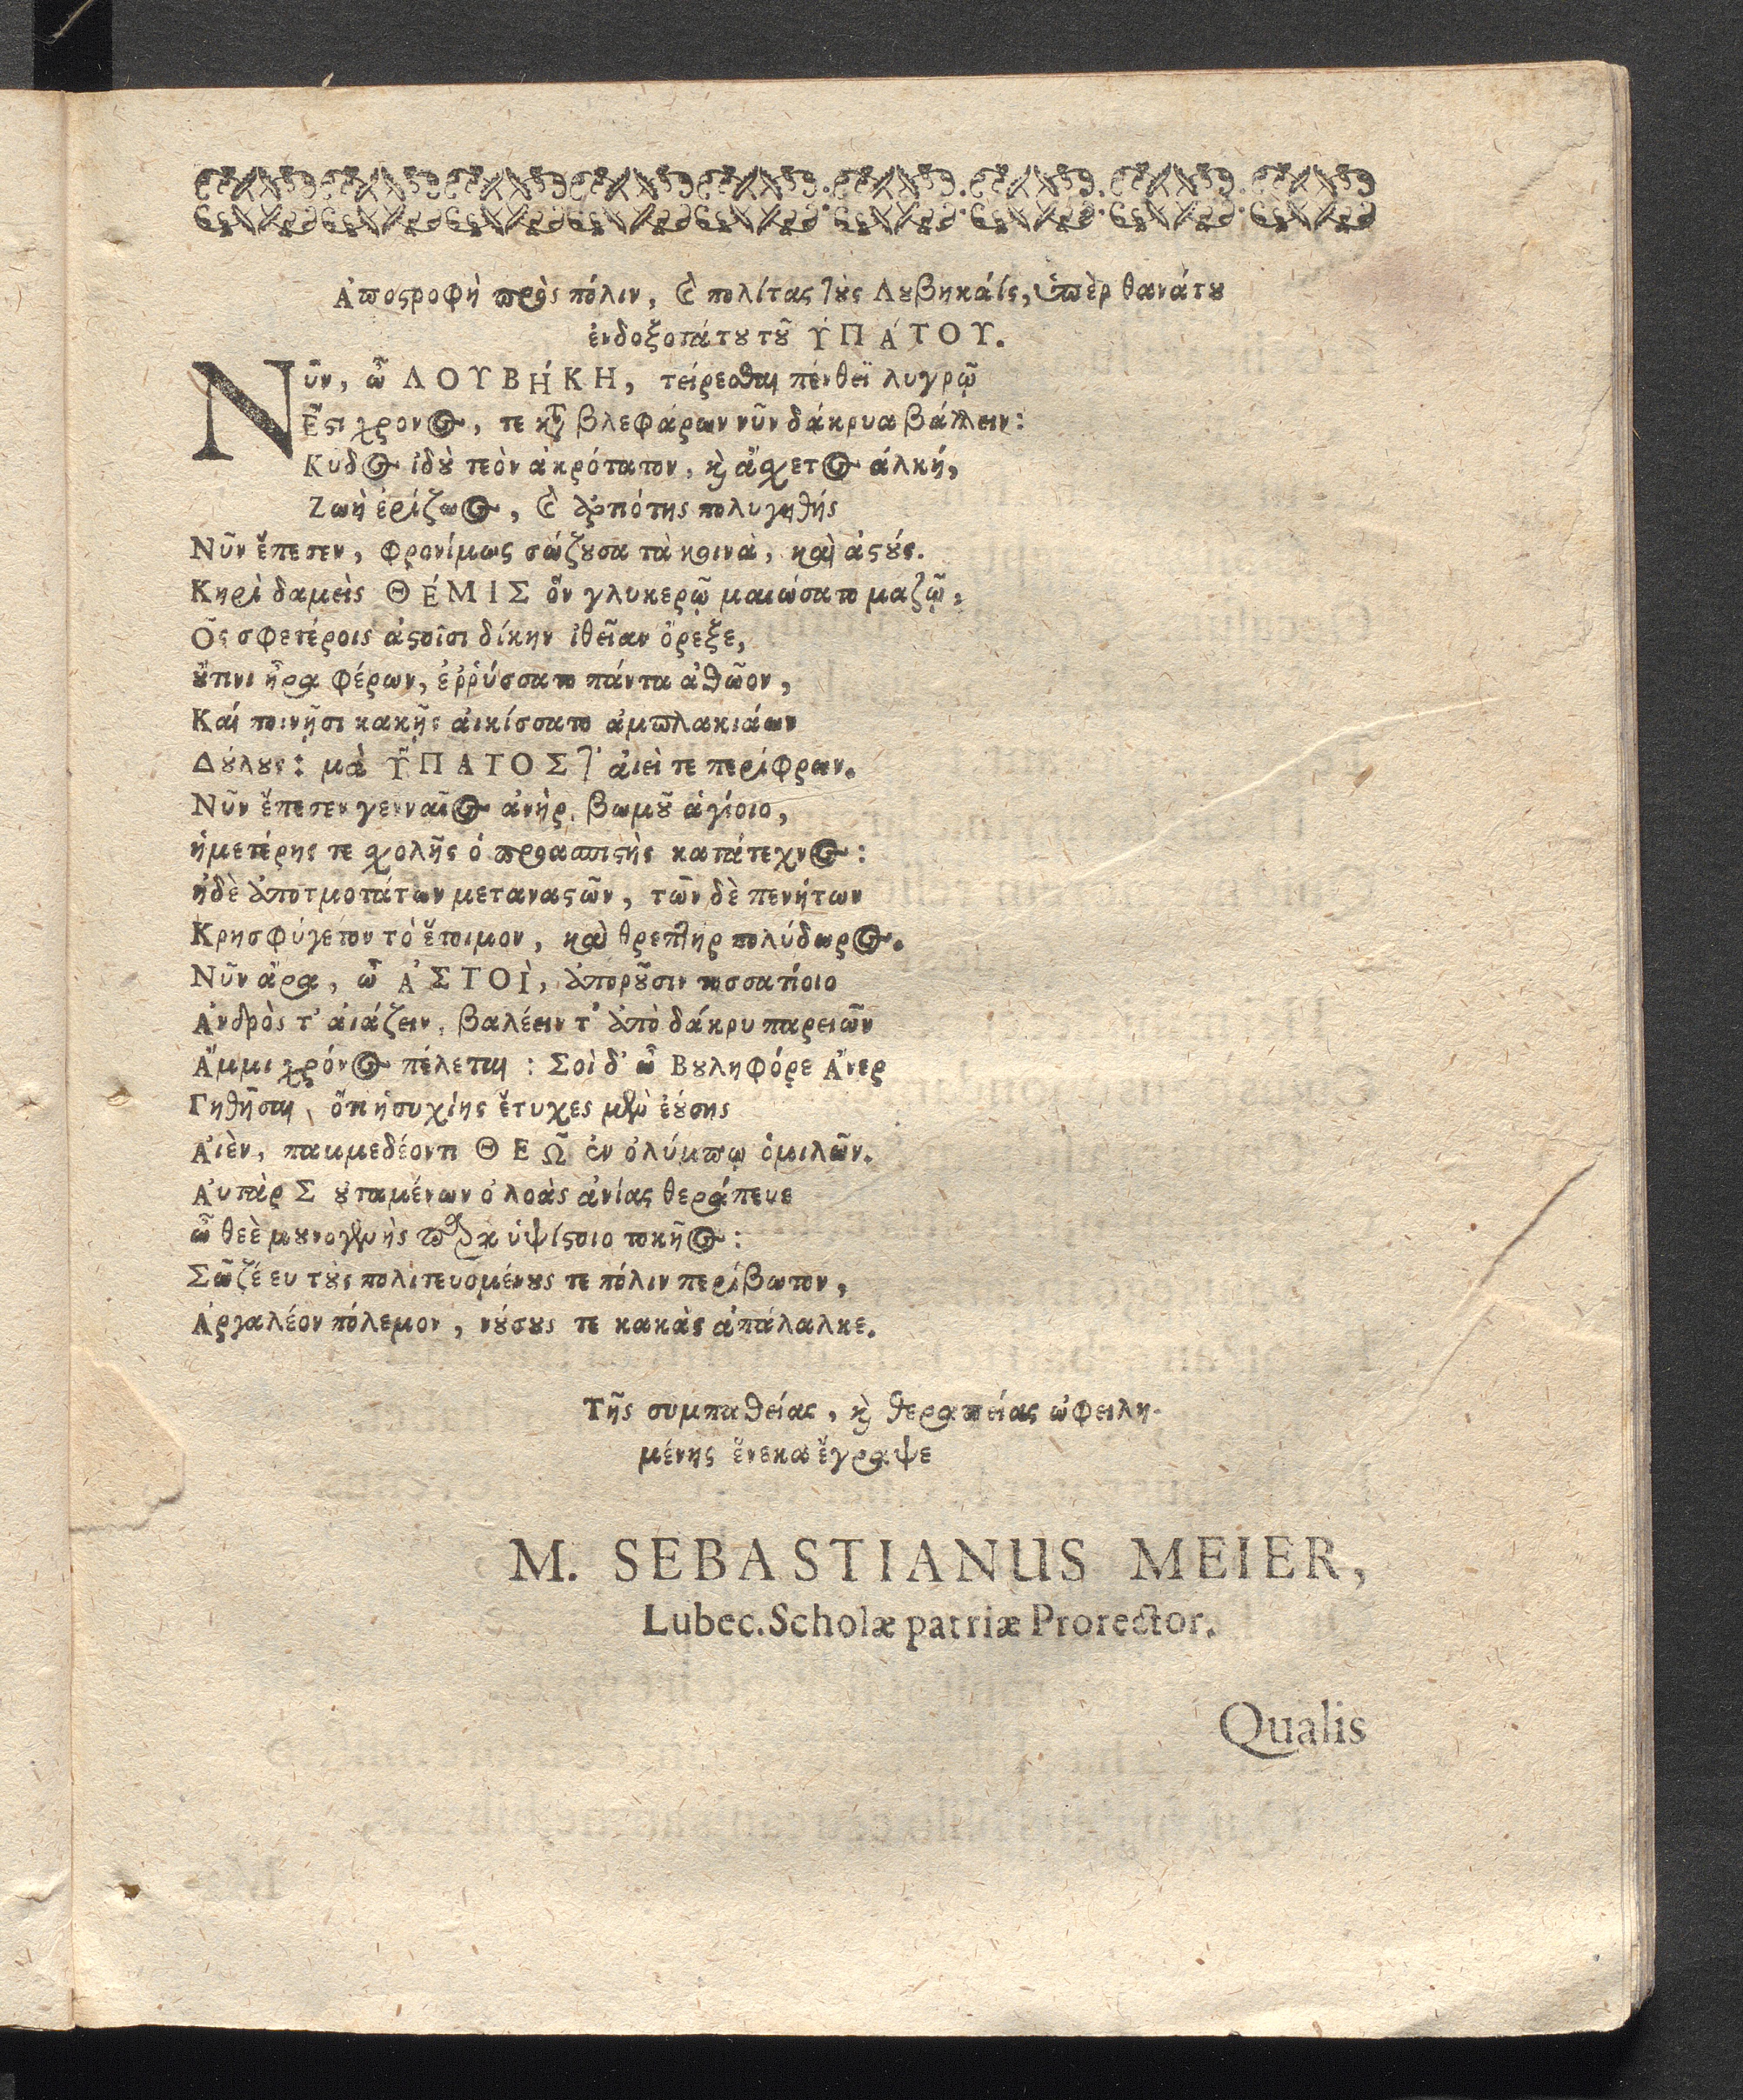 Ἀποϛροφὴ πρὸς πόλιν, καὶ πολίτας τȣ̀ς Λȣβηκάίς, ὑπὲρ θανάτȣ
ἐνδοξοτάτȣ τȣ͂ ὙΠΆΤΟΥ.
Νῦν, ὦ ΛΟΥΒΉΚΗ, τείρεσθαι πένθεϊ λυγρῷ
Ἔϛι χρονος, τε καὶ βλεφάρων νῦν δάκρυα βάλλειν:
Κυδος ἰδȣ̀ τεὸν ἀκρότατον, καὶ ἄσχετος ἀλκή,
Ζωὴ ἐρίζωος, καὶ πολυγηθής
Νῦν ἔπεσεν, φρονίμως σώζȣσα τὰ κοινὰ, καὶ ἀϛȣ́ς.
Κηρὶ δαμεὶς ΘΈΜΙΣ ὃν γλυκερῷ μαιώσατο μαζῷ,
Ὃς σφετέροις ἀϛοῖσι δίκην ἰθεῖαν ὄρεξε,
ȣ̓́τινι ἦρα φέρων, ἐῤῥύσσατο πάντα ἀθῶον,
Καί ποινῇσι κακῇς ἀικίσσατο ἀμπλακιάων
Δȣ́λȣς: μὰ ὝΠΑΤΟΣ τ' ἀιεὶ τε περίφρων.
Νῦν ἔπεσεν γενναῖος ἀνὴρ, βωμȣ͂ ἁγίοιο,
ἡμετέρης τε σχολῆς ὁ προασπιϛὴς κατάτεχνος:
ἠδὲ ἀποτμοτάτων μεταναϛῶν, τῶν δὲ πενήτων
Κρησφύγετον τὸ ἕτοιμον, καὶ θρεπτὴρ πολύδωρος.
Νῦν ἄρα, ὦ ἈΣΤΟῚ, ἀπορȣ͂σιν τοσσατίοιο
Ἀνδρὸς τ' ἀιάζειν, βαλέειν τ' ἀπὸ δάκρυ παρειῶν
Ἄμμι χρόνος πέλεται: Σοὶ δ' ὦ Βȣληφόρε Ἄνερ
Γηθῆσαι, ὅτι ἡσυχίης ἔτυχες μὲν ἐȣ́σης
Ἀιὲν, παμμεδέοντι ΘΕΩ͂ ἐν ὀλύμπῳ ὁμιλῶν.
Ἀυτὰρ Σ ȣ̓ταμένων ὀλοὰς ἀνίας θεράπευε
ὦ θεὲ μȣνογενὴς ὑψίϛοιο τοκῆος:
Σῶζέ ευ τȣ̀ς πολιτευομένȣς τε πόλιν περίβωτον,
Ἀργαλέον πόλεμον, νȣ́σȣς τε κακὰς ἀπάλαλκε.
Τῆς συμπαθείας, καὶ θεραπείας ὠφειλη-
μένης ἕνεκα ἔγραψε
M. SEBASTIANUS MEIER,
Lubec. Scholæ patriæ Prorector.
Qualis